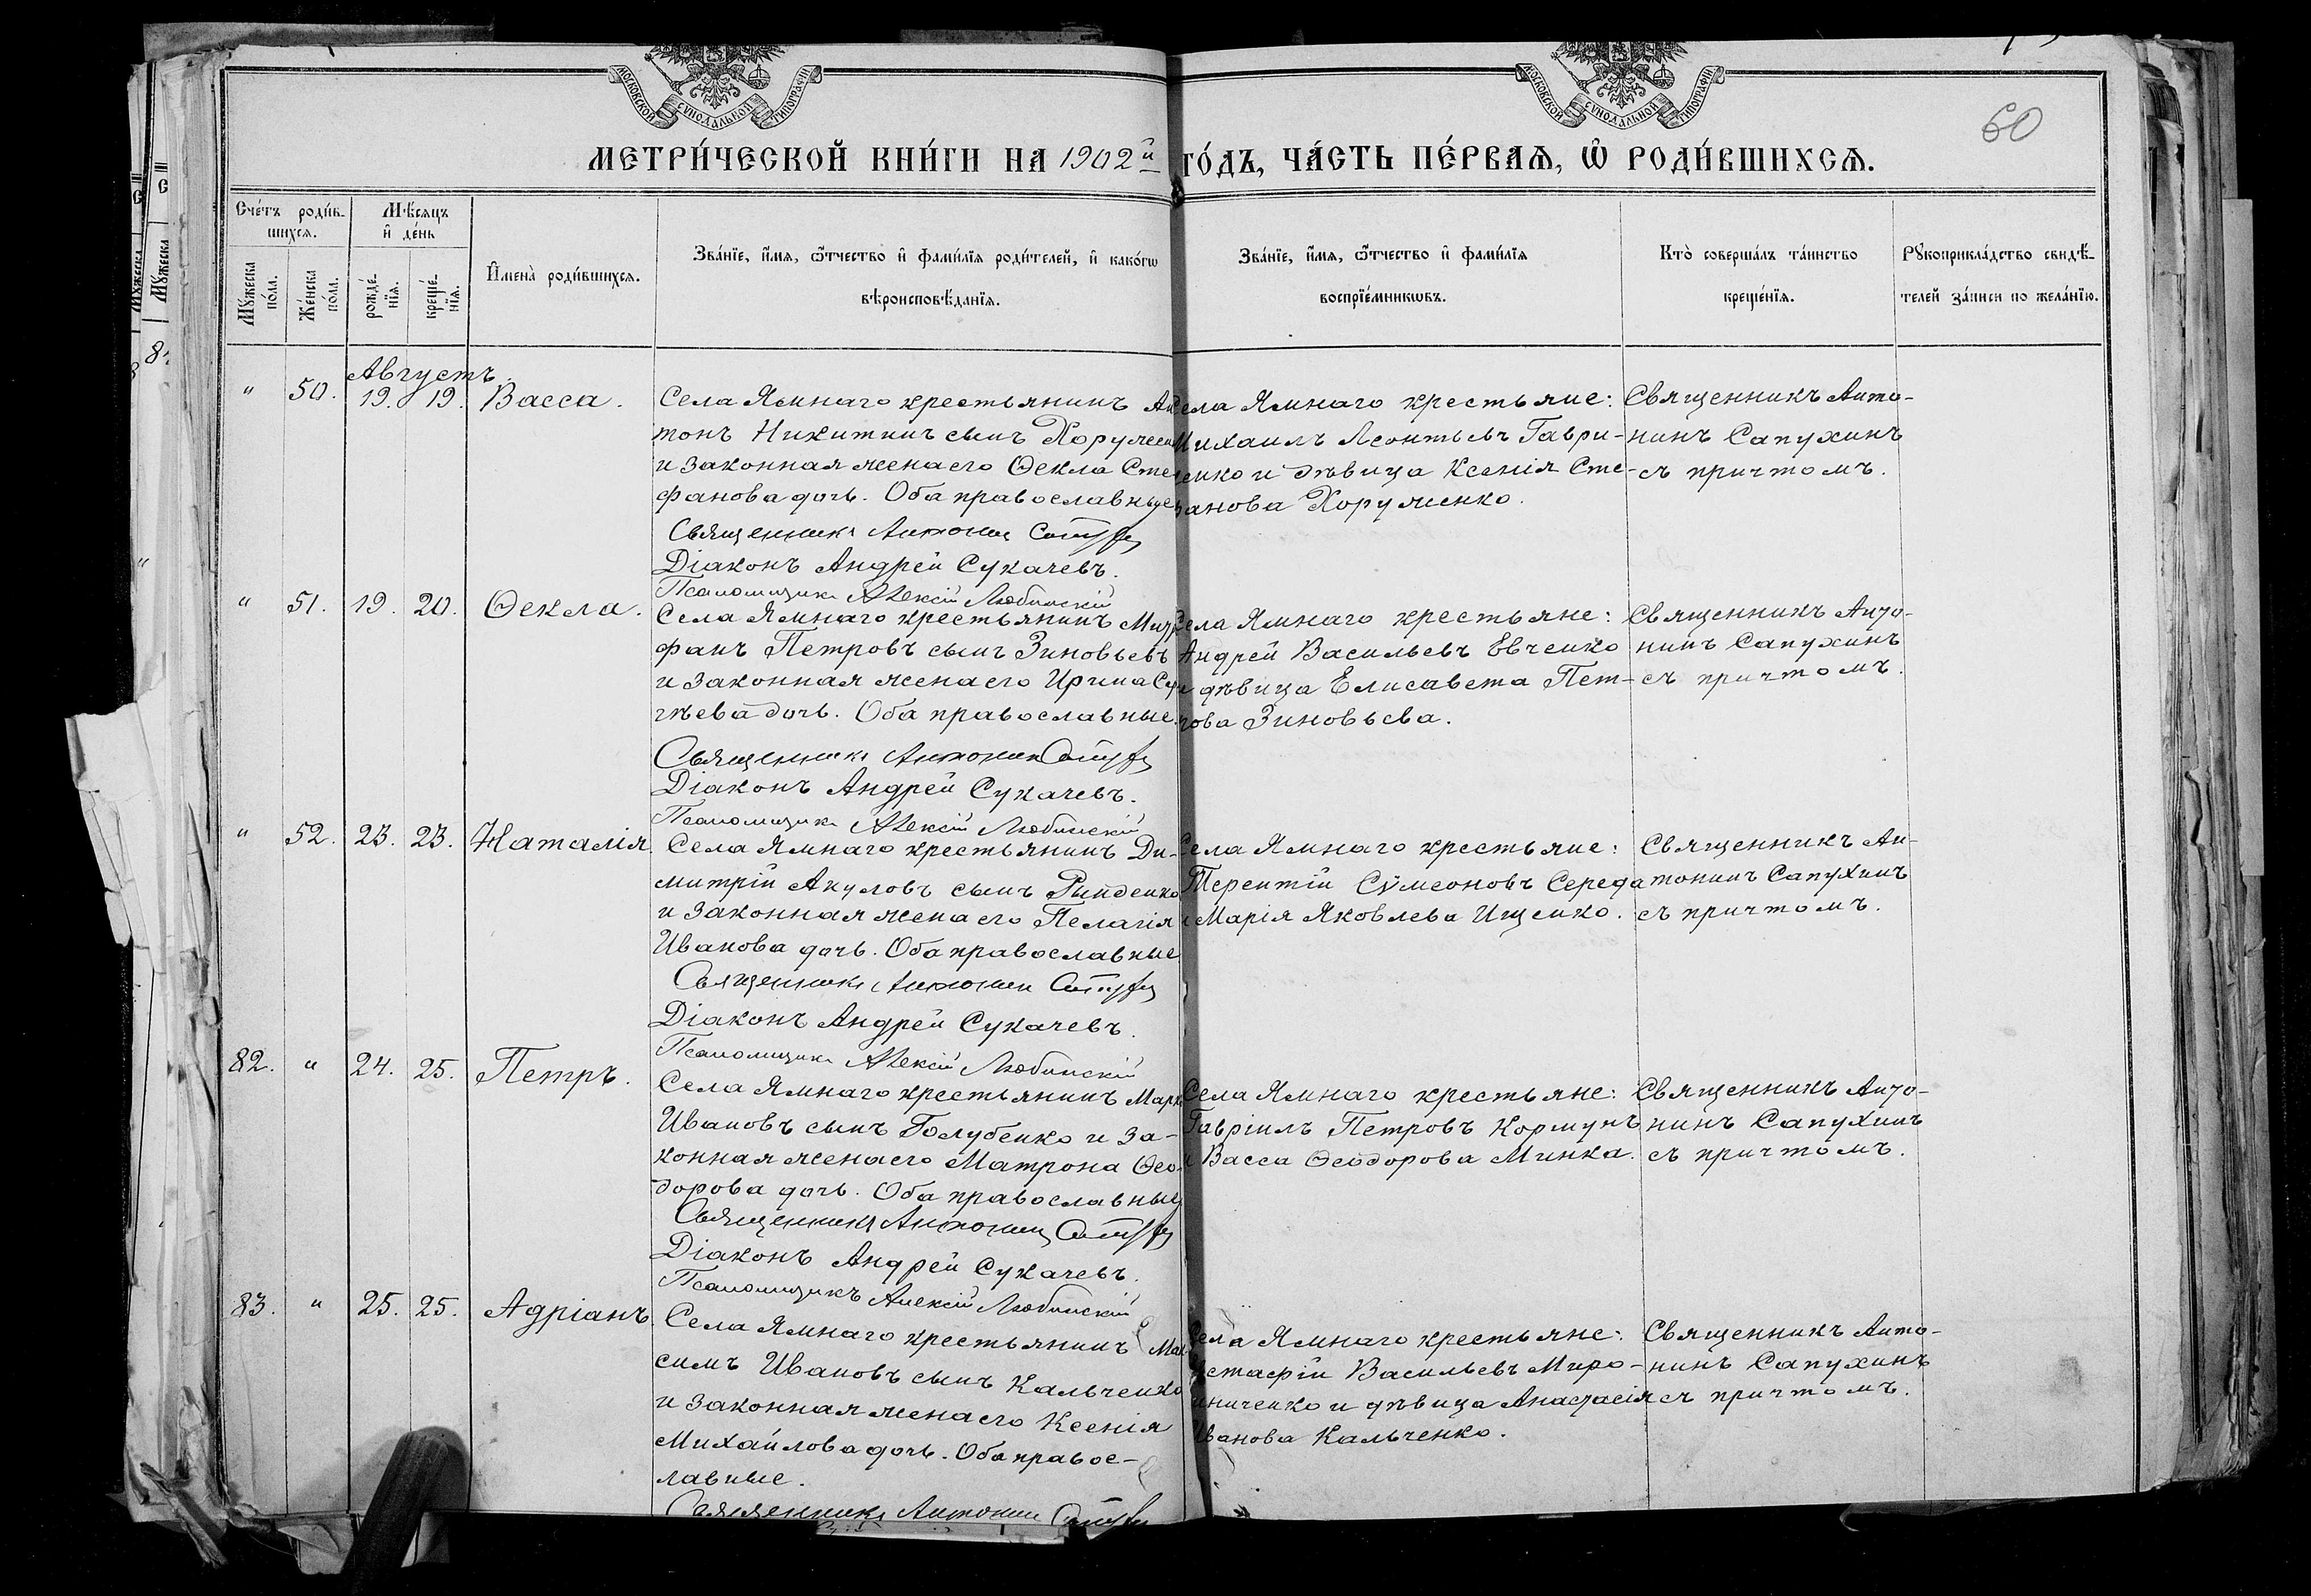 МОСКОВСКОЙ СѴНОДАЛЬНОЙ ТИПОГРАФІИ
МОСКОВСКОЙ СѴНОДАЛЬНОЙ ТИПОГРАФІИ
60
МЕТРИ́ЧЕСКОЙ КНИ́ГИ НА 1902й
ГО́ДЪ, ЧА́СТЬ ПЕ́РВАѦ, Ѡ҆ РОДИ́ВШИХСѦ.
Сче́тъ роди́в-
шихсѧ.
Мѣ́сяцъ
и҆ де́нь
Мꙋ́жеска
по́ла.
Же́нска
по́ла.
рожде́-
нїѧ.
креще́-
нїѧ.
И҆мена̀ роди́вшихсѧ.
Зва́нїе, и҆́мѧ, ѻ҆́тчество и҆ фами́лїѧ роди́телей, и҆ како́гѡ
вѣроисповѣ́данїѧ.
Зва́нїе, и҆́мѧ, ѻ҆́тчество и҆ фами́лїѧ
воспрїе́мникѡвъ.
Кто̀ соверша́лъ та́инство
креще́нїѧ.
Рꙋкоприкла́дство свидѣ́-
телей за́писи по жела́нїю.
Августъ.
" 50. 19. 19. Васса.
Села Ямнаго крестьянинъ Ан
тонъ Никитинъ сынъ Хоружен
и законная жена его Ѳекла Сте
фанова дочь. Оба православные
Священникъ Антонин
Діаконъ Андрей Сукачевъ.
Псаломщикъ Алексій Любинскій
Села Ямнаго крестьяне:
Михаилъ Леонтьевъ Гаври-
ленко и дѣвица Ксенія Сте-
фанова Хоруженко.
Священникъ Анто-
нинъ Сапухинъ
съ причтомъ.
" 51. 19. 20. Ѳекла.
Села Ямнаго крестьянинъ Митр
фанъ Петровъ сынъ Зиновьевъ
и законная жена его Ирина Сер
гѣева дочь. Оба православные.
Священникъ Антонин
Діаконъ Андрей Сукачевъ.
Псаломщикъ Алексій Любинскій
Села Ямнаго крестьяне:
Андрей Васильевъ Евченко
и дѣвица Елисавета Пет-
рова Зиновьева.
Священникъ Анто-
нинъ Сапухинъ
съ причтомъ.
" 52. 23. 23. Наталія.
Села Ямнаго крестьянинъ Ди-
митрій Акуловъ сынъ Рынденко
и законная жена его Пелагія
Иванова дочь. Оба православные
Священникъ Антонин
Діаконъ Андрей Сукачевъ.
Псаломщикъ Алексій Любинскій
Села Ямнаго крестьяне:
Терентій Сѵмеоновъ Середа
и Марія Яковлева Ищенко.
Священникъ Ан-
тонинъ Сапухинъ
съ причтомъ.
82. " 24. 25. Петръ.
Села Ямнаго крестьянинъ Марк
Ивановъ сынъ Голубенко и за-
конная жена его Матрона Ѳео-
дорова дочь. Оба православные
Священникъ Антонин
Діаконъ Андрей Сукачевъ.
Псаломщикъ Алексій Любинскій
Села Ямнаго крестьяне:
Гавріилъ Петровъ Кормунъ
и Васса Ѳеодорова Минка.
Священникъ Анто-
нинъ Сапухинъ
съ причтомъ.
83. " 25. 25. Адріанъ.
Села Ямнаго крестьянинъ Мак
симъ Ивановъ сынъ Кальченко
и законная жена его Ксенія
Михайлова дочь. Оба правос-
лавные.
Священникъ Антонин
Села Ямнаго крестьяне:
Евстафій Васильевъ Миро-
шниченко и дѣвица Анастасія
Иванова Кальченко.
Священникъ Анто-
нинъ Сапухинъ
съ причтомъ.